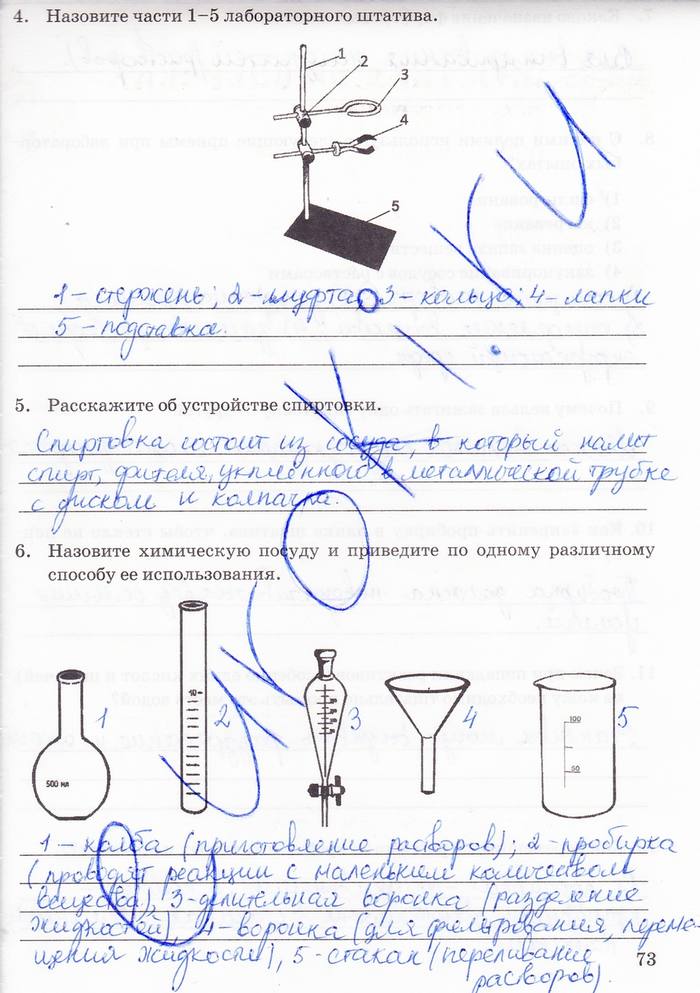 4. Назовите части 1–5 лабораторного штатива.
1
2
3
4
5
1 – стержень; 2 – муфта; 3 – кольцо; 4 – лапки
5 – подставка.
5. Расскажите об устройстве спиртовки.
Спиртовка состоит из сосуда, в который налит
спирт, фителя, укплённого в металлической трубке
с диском и колпачка.
6. Назовите химическую посуду и приведите по одному различному
способу ее использования.
500 мл
1
10
2
3
4
100
50
5
1 – колба (приготовление расворов); 2 – пробирка
(проводят реакции с маленьким количеством
вещества), 3 – делительная воронка (разделение
жидкостей), 4 – воронка (для фильтрования, переме-
щения жидкости), 5 – стакан (переливание
расворов).
73